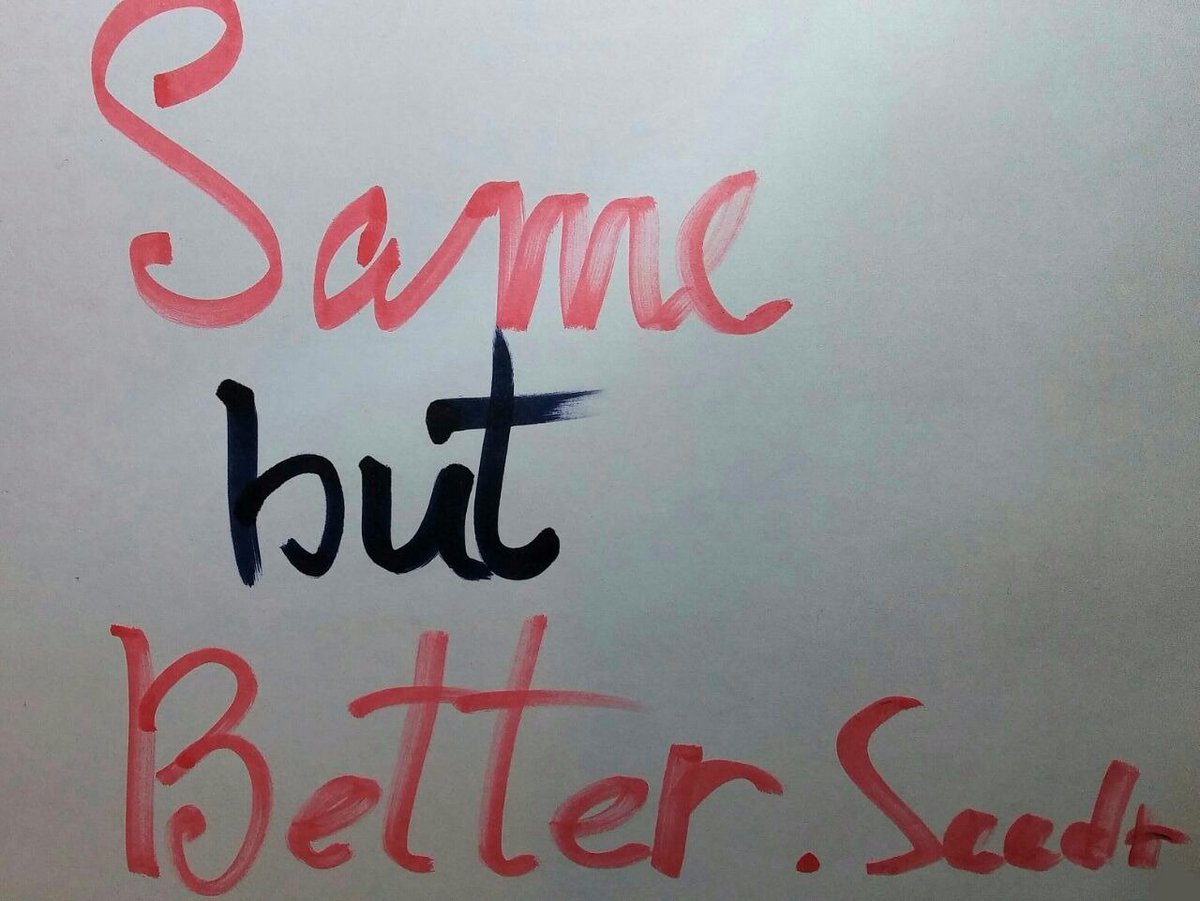 Same
but
Better. Seedr